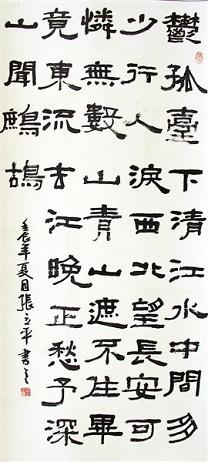 鬱孤臺下清江水中間多
少行人淚西北望長安可
憐無數山青山遮不住畢
竟東流去江晚正愁予深
山聞鷓鴣
壬辰年夏日張立平書之